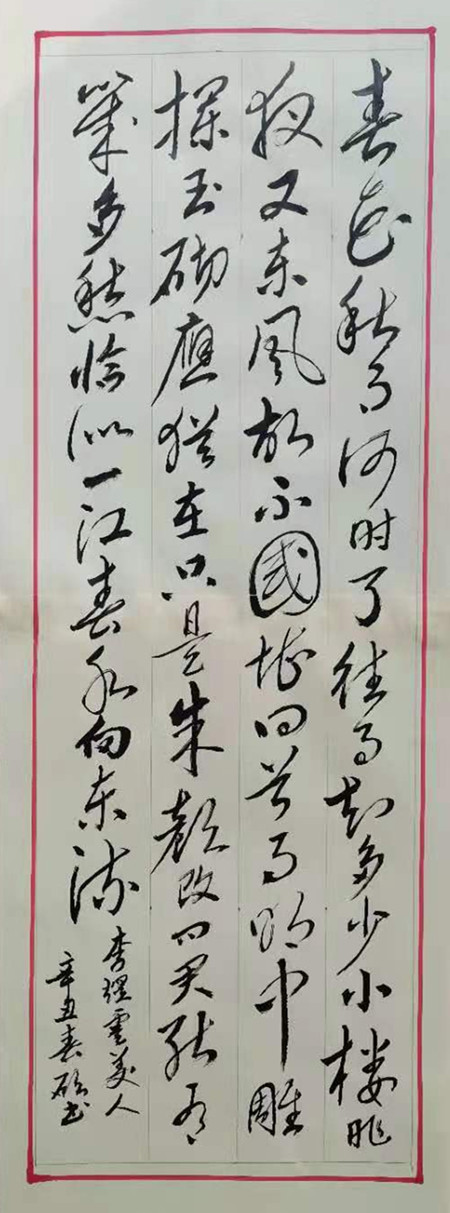 春花秋月何时了往事知多少小楼昨
夜又东風故不國堪回首月明中雕
欄玉砌應猶在只是朱颜改问君能有
幾多愁恰似一江春水向东流
李煜虞美人
辛丑春书